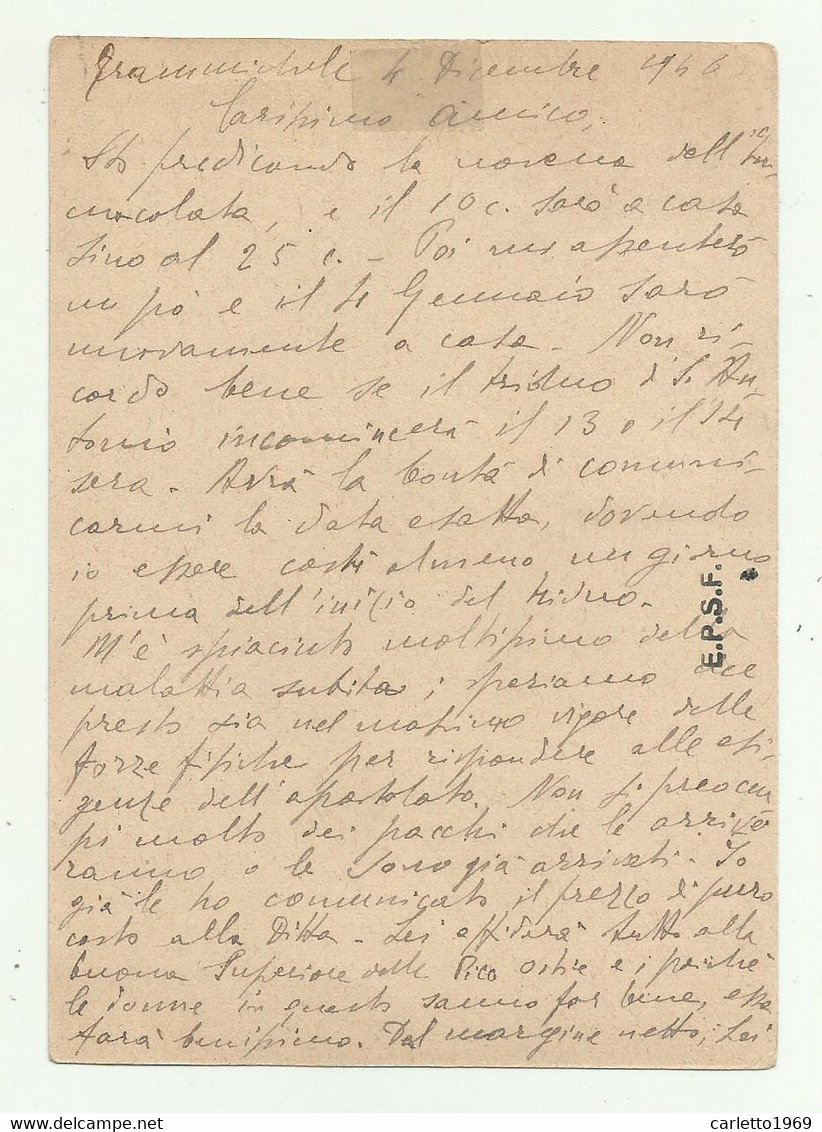 Grammichele 4 Dicembre 1946
Carissimo Amico,
Sto predicando la novena dell'Im-
macolata, e il 10 c. sarò a casa
sino al 25 c. - Poi mi assenterò
un pò e il 4 Gennaio sarò
nuovamente a casa - Non ri-
cordo bene se il triduo di S. An-
tonio incomincerà il 13 o il 14
sera. Avrà la bontà di comuni-
carmi la data esatta, dovendo
io essere costì almeno un giorno
prima dell'inizio del triduo.
M'è spiaciuto moltissimo della
malattia subita; speriamo che
presto sia nel massimo vigore delle
forze fisiche per rispondere alle esi-
genze dell'apostolato. Non si preoccu-
pi molto dei pacchi che le arrive
ranno o le sono già arrivati. Io
già le ho comunicato il prezzo di puro
costo alla Ditta - Lei affiderà tutto alla
buona Superiora delle Pico e poichè
le donne in questo sanno far bene, essa
farà benissimo. Dal margine netto, Lei
E.P.S.F.
carletto1969